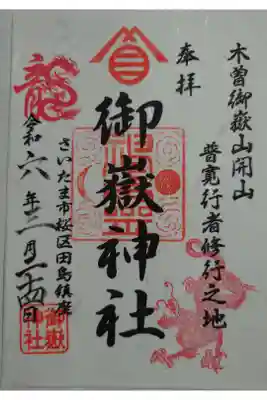 木曽御嶽山開山
普寛行者修行之地
奉拝
御嶽神社
さいたま市桜区田島鎮座
令和六年二月二十四日
龍
御嶽神社